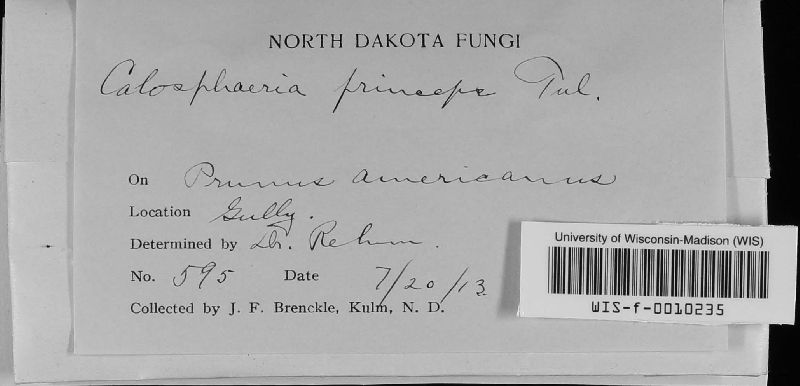 NORTH DAKOTA FUNGI
Calosphaeria princeps Tul.
On Prunus americanus
Location Gully.
Determined by Dr. Rehm.
No. 595 Date 7/20/13
Collected by J. F. Brenckle, Kulm, N. D.
University of Wisconsin-Madison (WIS)
WIS-f-0010235